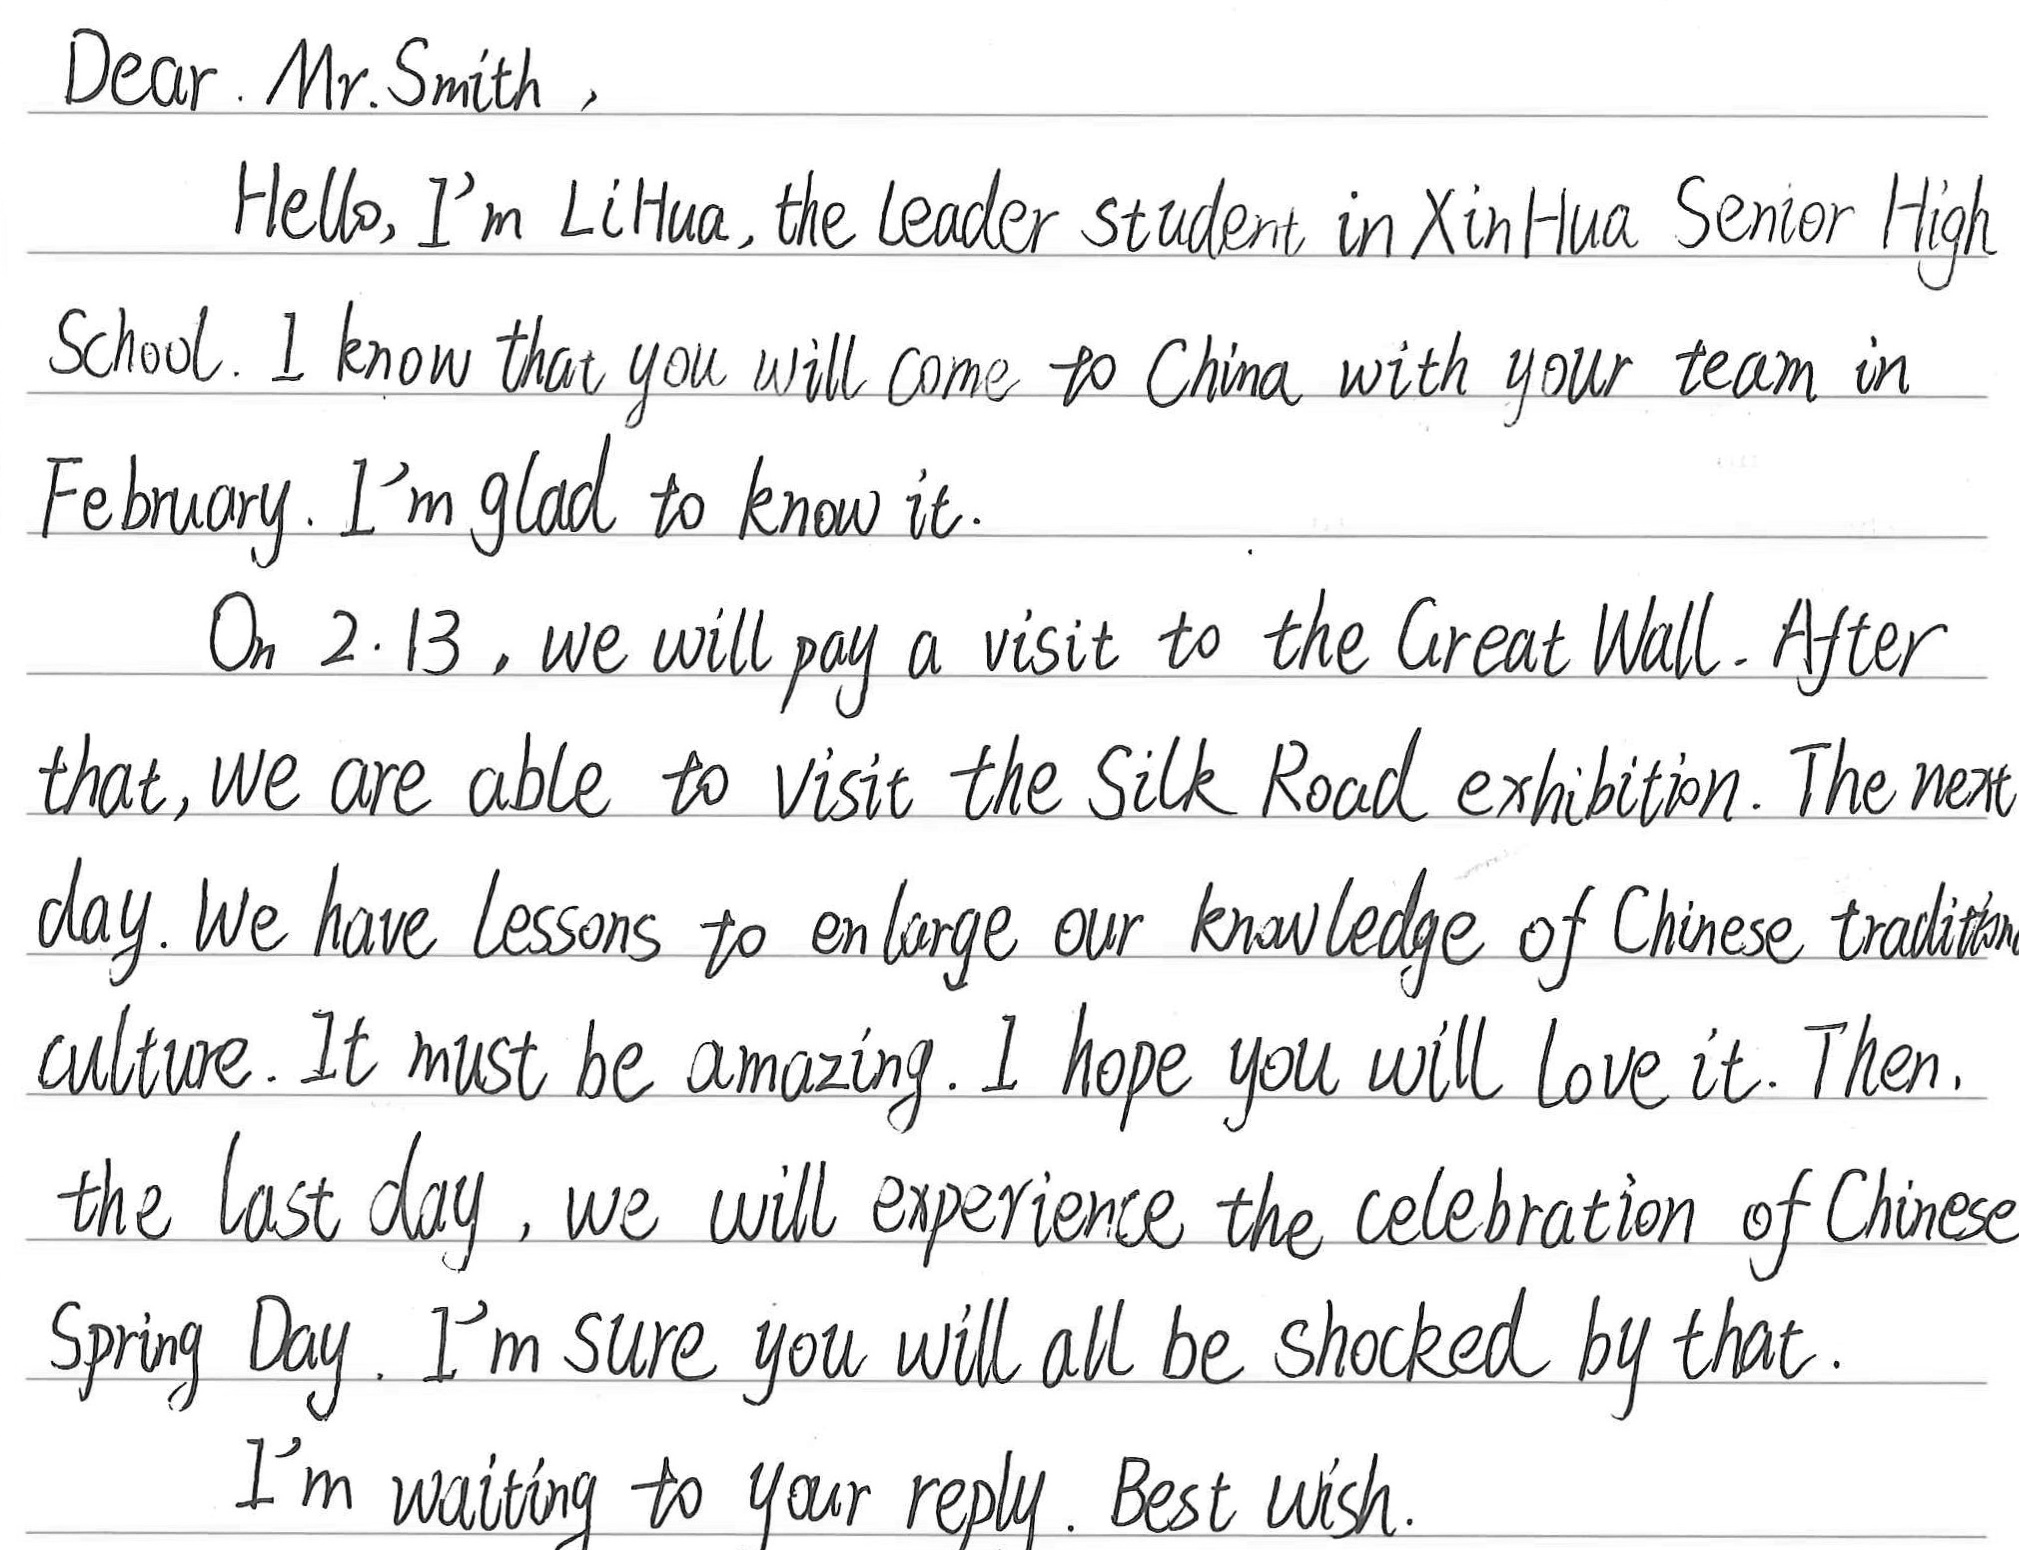 Dear. Mr. Smith,
Hello, I'm LiHua, the leader student in XinHua Senior High
School. I know that you will come to China with your team in
February. I'm glad to know it.
On 2.13, we will pay a visit to the Great Wall. After
that, we are able to visit the Silk Road exhibition. The next
day. We have lessons to enlarge our knowledge of Chinese tradition
culture. It must be amazing. I hope you will love it. Then,
the last day, we will experience the celebration of Chinese
Spring Day. I'm sure you will all be shocked by that.
I'm waiting to your reply. Best wish.